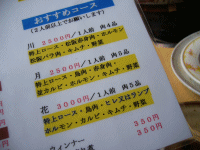 おすすめコース
(2人前以上でお願いします)
川 2500円/1人前 肉4品
特上ロース・
松阪バラ肉・キムチ・野菜
月 2500円/1人前 肉5品
特上ロース・鳥肉・
並カルビ・ホルモン・キムチ・野菜
花 3000円/1人前 肉5品
特上ロース・鳥肉・ヒレ又はランプ
ホルモン・カルビ・キムチ・野菜
350円
ウィンナー 350円